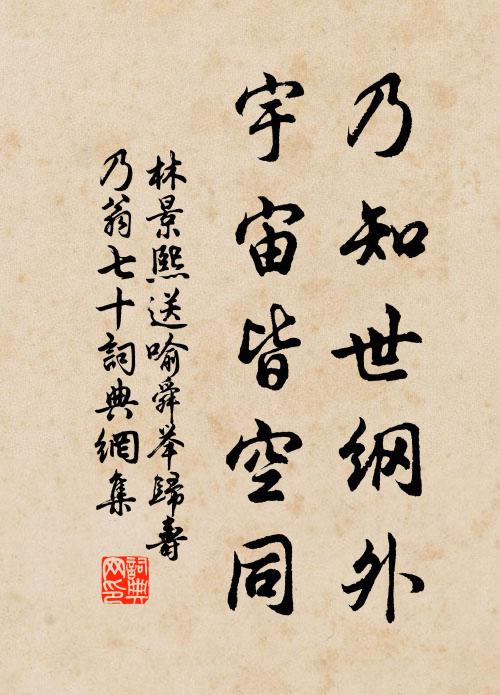 乃知世纲外
宇宙皆空同
林景熙送喻舜举歸壽
乃翁七十詞典網集
詞典网印